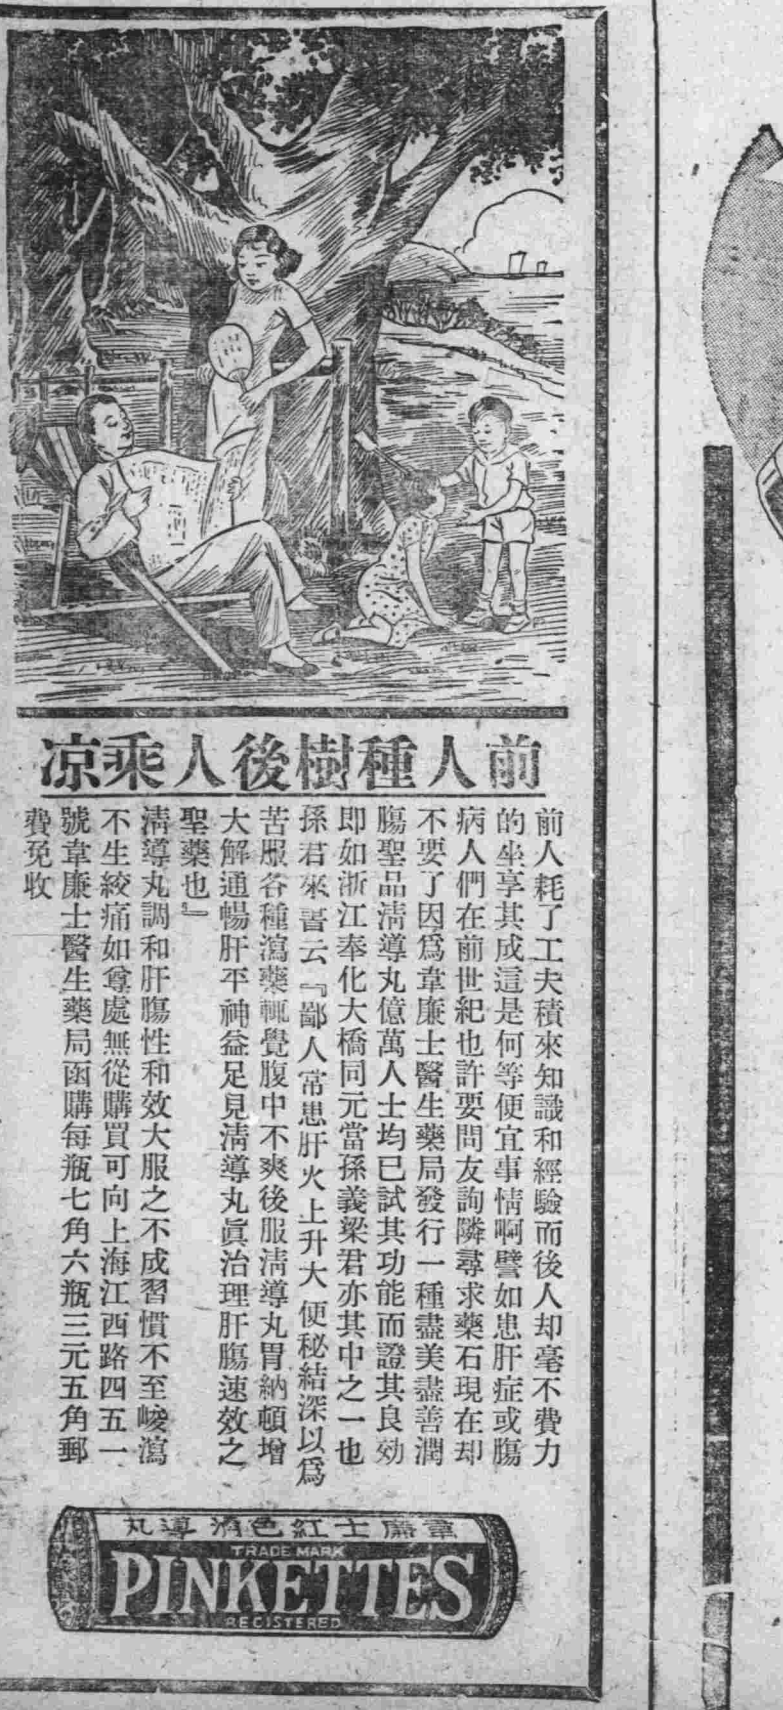 前人種樹後人乘凉
前人耗了工夫積來知識和經驗而後人却毫不費力
的坐享其成這是何等便宜事情啊譬如患肝症或腸
病人們在前世紀也許要問友詢隣尋求藥石現在却
不要了因爲韋廉士醫生藥局發行一種盡美盡善潤
腸聖品淸導丸億萬人士均已試其功能而證其良効
即如浙江奉化大橋同元當孫義梁君亦其中之一也
孫君來書云『鄙人常患肝火上升大便秘結深以爲
苦服各種瀉藥輒覺腹中不爽後服淸導丸胃納頓增
大解通暢肝平神益足見淸導丸眞治理肝腸速效之
聖藥也』
淸導丸調和肝腸性和效大服之不成習慣不至峻瀉
不生絞痛如尊處無從購買可向上海江西路四五一
號韋廉士醫生藥局函購每瓶七角六瓶三元五角郵
費免收
韋廉士紅色淸導丸
TRADE MARK
PINKETTES
REGISTERED